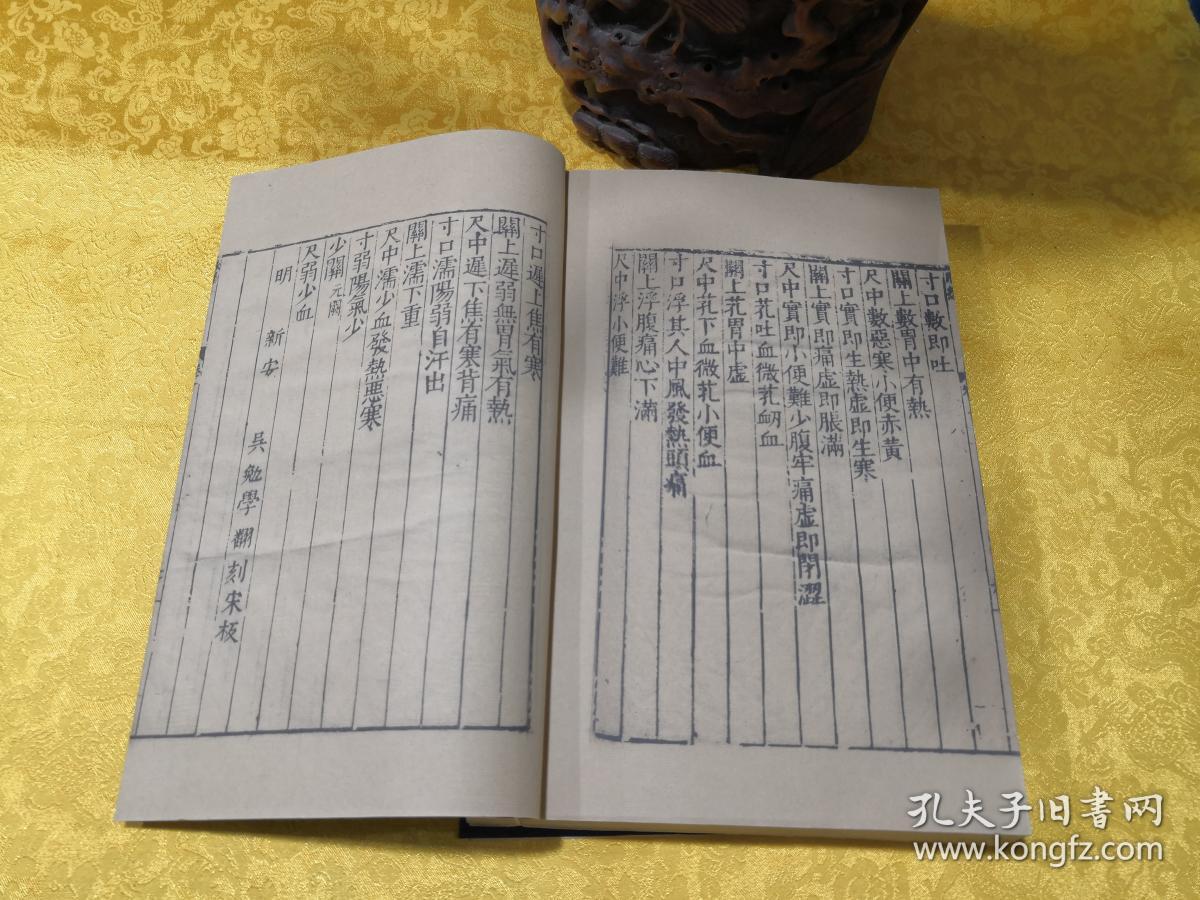 寸口數即吐
關上數胃中有熱
尺中數惡寒小便赤黃
寸口實即生熱虛即生寒
關上實即痛虛即脹滿
尺中實即小便難少腹牢痛虛即閉澀
寸口芤吐血微芤衂血
關上芤胃中虛
尺中芤下血微芤小便血
寸口浮其人中風發熱頭痛
關上浮腹痛心下滿
尺中浮小便難
寸口遲上焦有寒
關上遲弱無胃氣有熱
尺中遲下焦有寒背痛
寸口濡陽弱自汗出
關上濡下重
尺中濡少血發熱惡寒
寸弱陽氣少
少關元闕
尺弱少血
明 新安 吳勉學翻刻宋板
孔夫子旧书网
www.kongfz.com